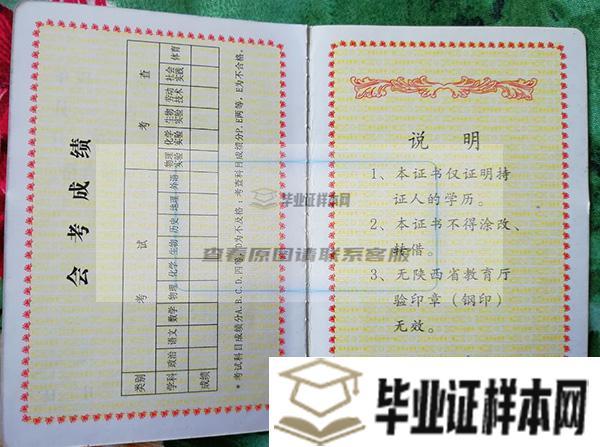 会考成绩
类别 考试 考查
学科 政治 语文 数学 物理 化学 生物 历史 地理 外语 物理实验 化学实验 生物实验 劳动技术 社会实践 体育
成绩
*考试科目成绩分A.B.C.D.四等，D为不合格；考查科目成绩分P、E两等，E为不合格。
说 明
1、本证书仅证明持
证人的学历。
2、本证书不得涂改、
转借。
3、无陕西省教育厅
验印章（钢印）
无效。
毕业证样本网
查看原图请联系客服
毕业证样本网